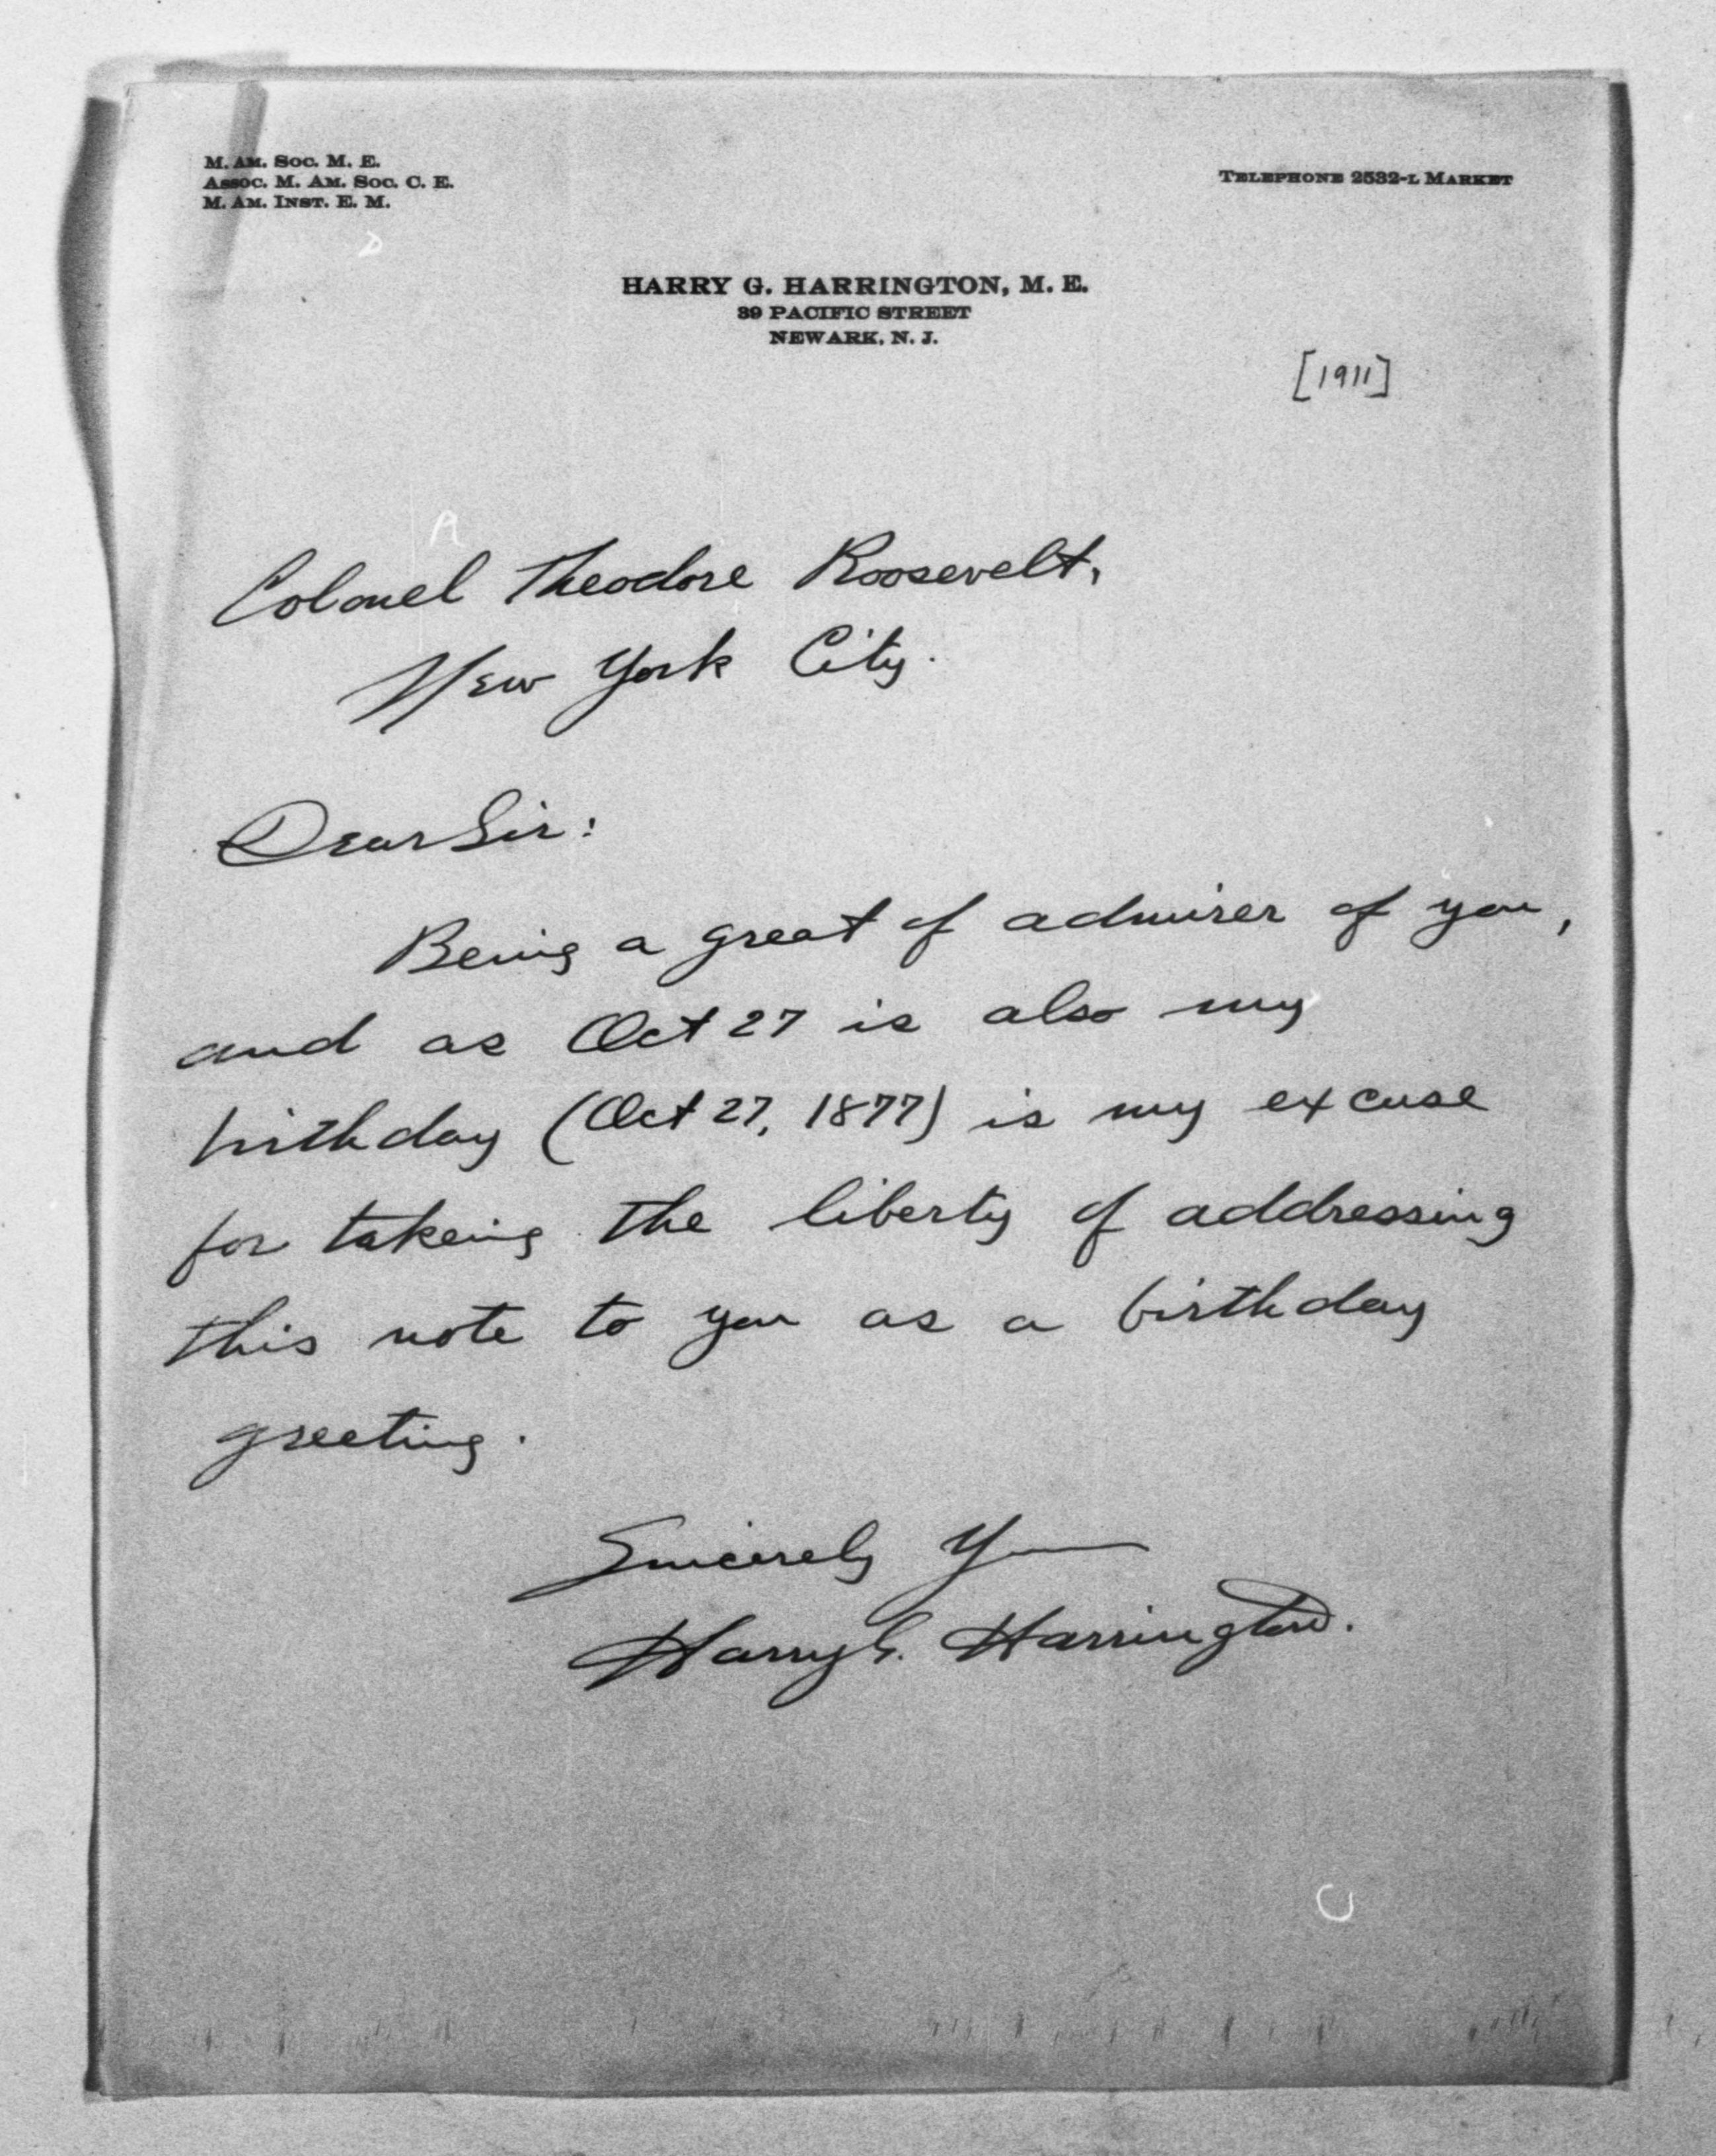 M. Am. Soc. M. E.
Assoc. M. Am. Soc. C. E.
M. Am. Inst. E. M.
Telephone 2532-L Market
HARRY G. HARRINGTON, M. E.
39 PACIFIC STREET
NEWARK, N. J.
[1911]
Colonel Theodore Roosevelt,
New York City.
Dear Sir:
Being a great of admirer of you,
and as Oct 27 is also my
birthday (Oct 27, 1877) is my excuse
for takeing the liberty of addressing
this note to you as a birthday
greeting.
Sincerely
Harry G. Harrington.